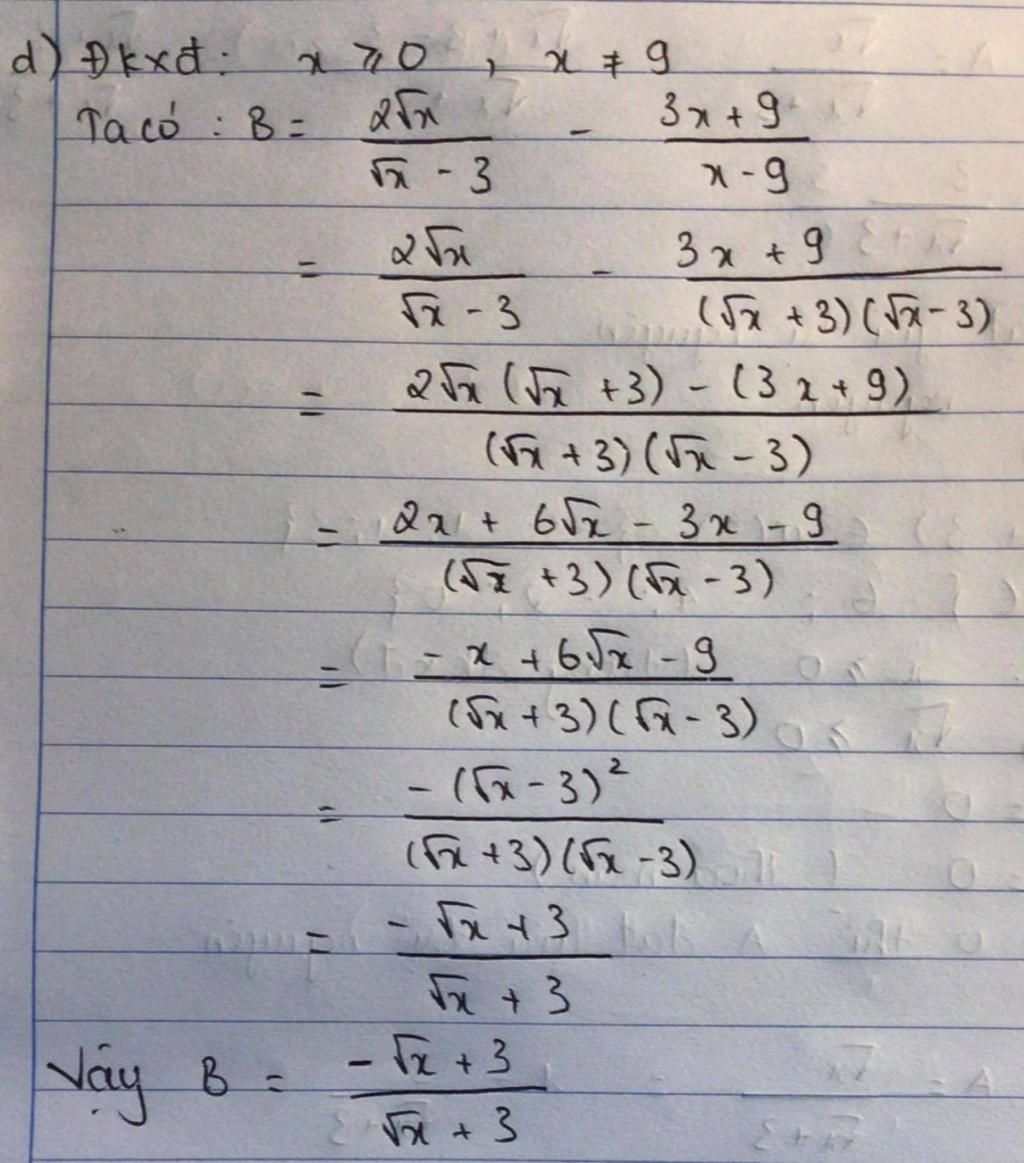 d) Đkxđ: x ⩾ 0 , x ≠ 9
Ta có : B = 2√x / (√x - 3) - (3x + 9) / (x - 9)
= 2√x / (√x - 3) - (3x + 9) / ((√x + 3)(√x - 3))
= (2√x (√x + 3) - (3x + 9)) / ((√x + 3)(√x - 3))
= (2x + 6√x - 3x - 9) / ((√x + 3)(√x - 3))
= (-x + 6√x - 9) / ((√x + 3)(√x - 3))
= -(√x - 3)² / ((√x + 3)(√x - 3))
= (-√x + 3) / (√x + 3)
Vậy B = (-√x + 3) / (√x + 3)